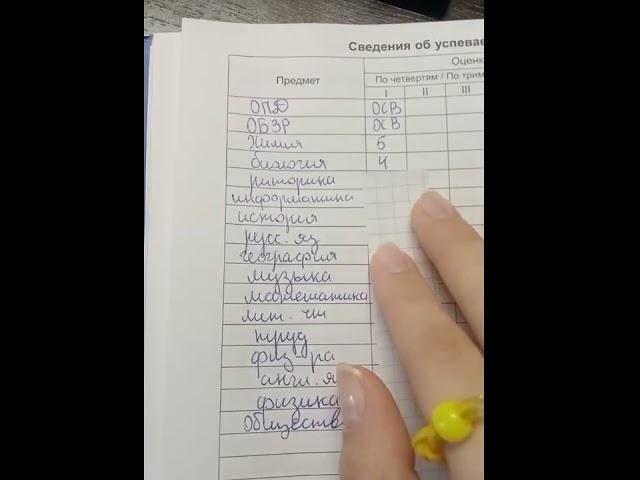 Сведения об успевае
Предмет
Оценк
По четвертям / По трим
I II III
ОПД ОСВ
ОБЗР ОСВ
Химия 5
биология 4
риторика
информатика
история
русс. яз
география
музыка
математика
лит. чт
труд
физ-ра
англ. я
физика
Обществ